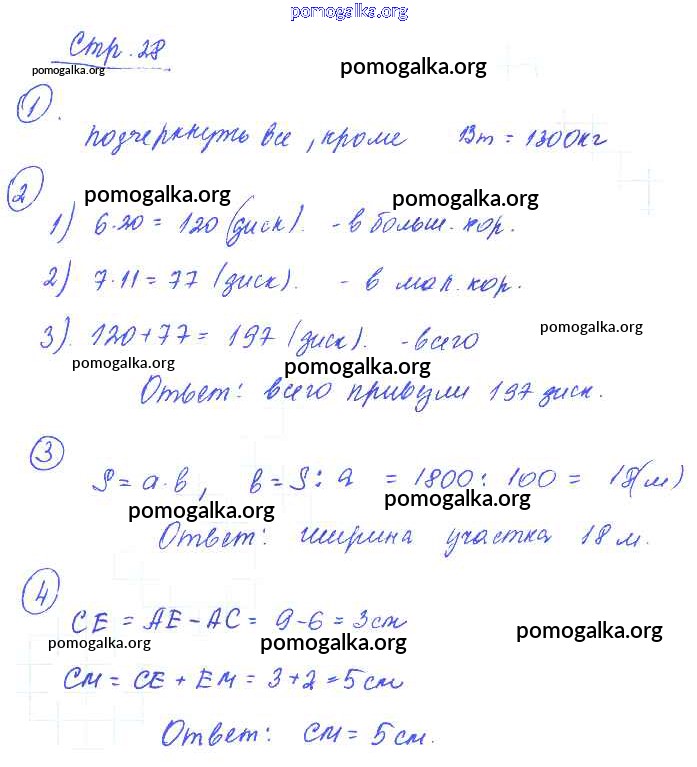 pomogalka.org
Стр. 28
pomogalka.org
pomogalka.org
1.
подчеркнуть все, кроме 13т = 1300кг
2
pomogalka.org
pomogalka.org
1) 6·20 = 120 (диск). - в больш. кор.
2) 7·11 = 77 (диск). - в мал. кор.
3). 120+77 = 197 (диск). - всего
pomogalka.org
pomogalka.org
pomogalka.org
Ответ: всего привезли 197 диск.
3
S = a·b, b = S : a = 1800 : 100 = 18(м)
pomogalka.org
pomogalka.org
Ответ: ширина участка 18 м.
4
CE = AE - AC = 9-6 = 3см
pomogalka.org
pomogalka.org
pomogalka.org
CM = CE + EM = 3+2 = 5 см
Ответ: CM = 5 см.